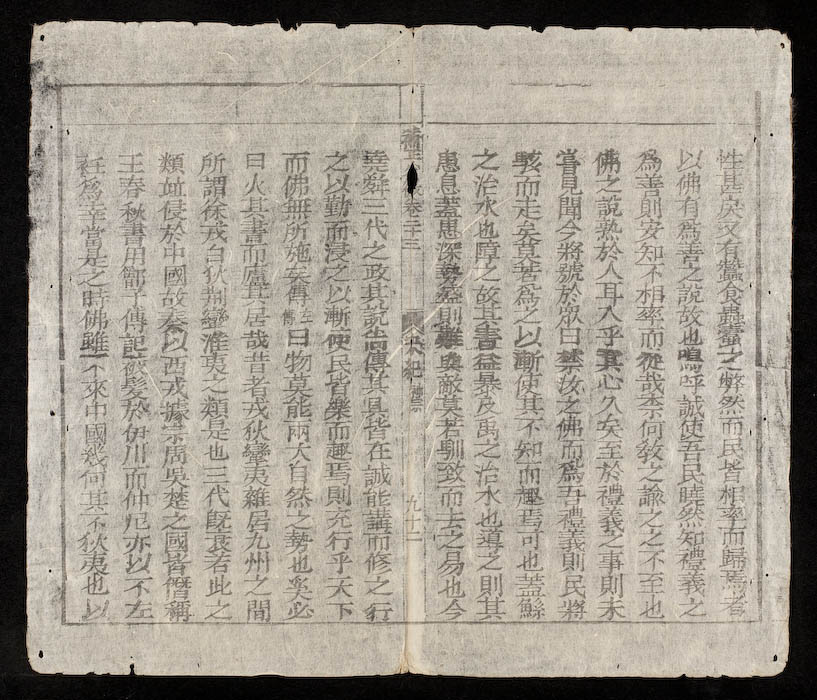 性甚戾又有蠶食蟲蠹之弊然而民皆相率而歸焉者
以佛有爲善之說故也嗚呼誠使吾民曉然知禮義之
爲善則安知不相率而從哉柰何敎之諭之之不至也
佛之說熟於人耳入乎其心久矣至於禮義之事則未
嘗見聞今將號於眾曰禁汝之佛而爲吾禮義則民將
駭而走矣莫若爲之以漸使其不知而趣焉可也蓋鯀
之治水也障之故其害益暴及禹之治水也導之則其
患息蓋患深勢盛則難與敵莫若馴致而去之易也今
卷二十三
九十二
堯舜三代之政其說尚傳其具皆在誠能講而修之行
之以勤而浸之以漸使民皆樂而趣焉則充行乎天下
而佛無所施矣傳曰物莫能兩大自然之勢也奚必
曰火其書而廬其居哉昔者戎狄蠻夷雜居九州之間
所謂徐戎白狄荆蠻淮夷之類是也三代旣衰若此之
類竝侵於中國故秦以西戎據宗周吳楚之國皆僭稱
王春秋書用鄫子傳記被髮於伊川而仲尼亦以不左
衽爲幸當是之時佛雖不來中國幾何其不狄夷也以